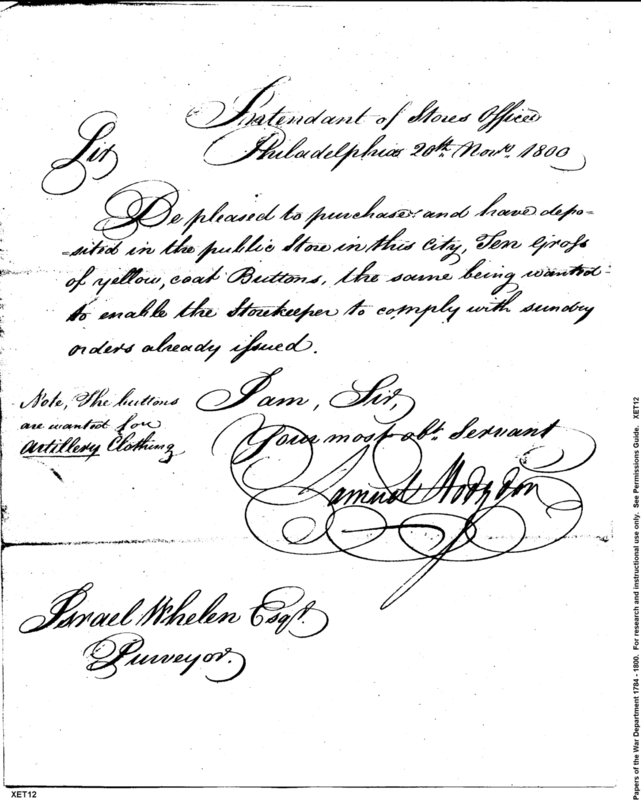 Intendant of Stores Office
Philadelphia 20th. Novr. 1800
Sir
Be pleased to purchase and have depo=
=sited in the public Store in this City, Ten Gross
of yellow, coat Buttons, the same being wanted
to enable the Storekeeper to comply with sundry
orders already issued.
I am, Sir,
Your most obt. Servant
Samuel Hodgdon
Note, The buttons
are wanted for
Artillery Clothing
Israel Whelen Esqr.
Purveyor.
XET12
Papers of the War Department 1784 - 1800. For research and instructional use only. See Permissions Guide. XET12